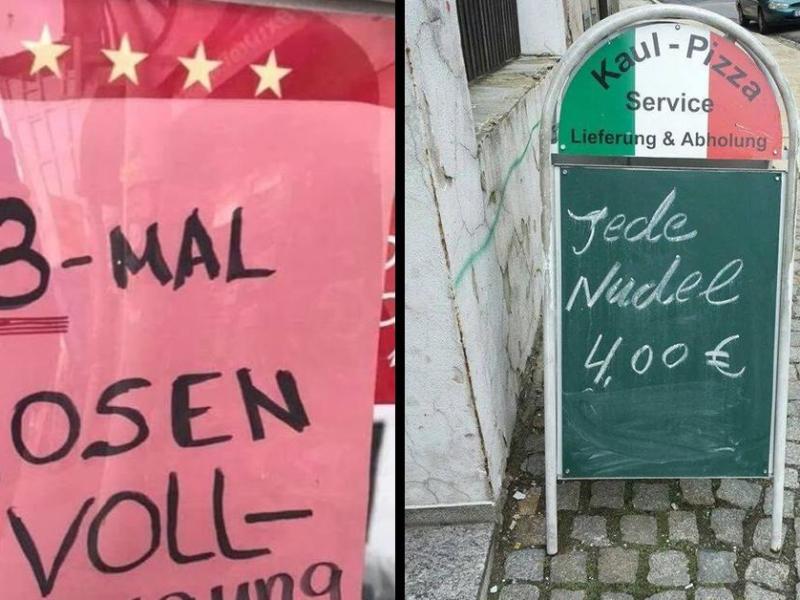 3-MAL
OSEN
VOLL-
gung
Kaul-Pizza
Service
Lieferung & Abholung
Jede
Nudel
4,00 €